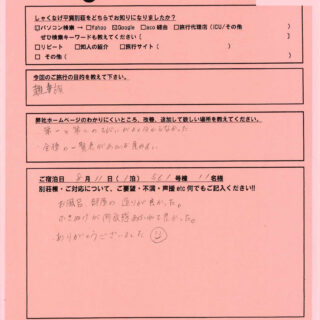 しゃくなげ平貸別荘をどちらでお知りになりましたか?
☑パソコン検索 → □Yahoo ☑Google □aco 経由 □旅行代理店 (ICU/その他 )
ぜひ検索キーワードも教えてください( )
□リピート □知人の紹介 □旅行サイト( )
□ その他( )
今回のご旅行の目的を教えて下さい。
親事
弊社ホームページのわかりにくいところ、改善、追加して欲しい場所を教えてください。
第一と第二の がよく分からなかった
全棟の一覧表があれば見
ご宿泊日 8月11日(1泊) 561号棟 11名様
別荘様・ご対応について、ご要望・不満・声援 etc 何でもご記入ください!!
お風呂、部屋の 造りが良かった。
ふきぬけが開放感あふれて良かった。
ありがとうございました